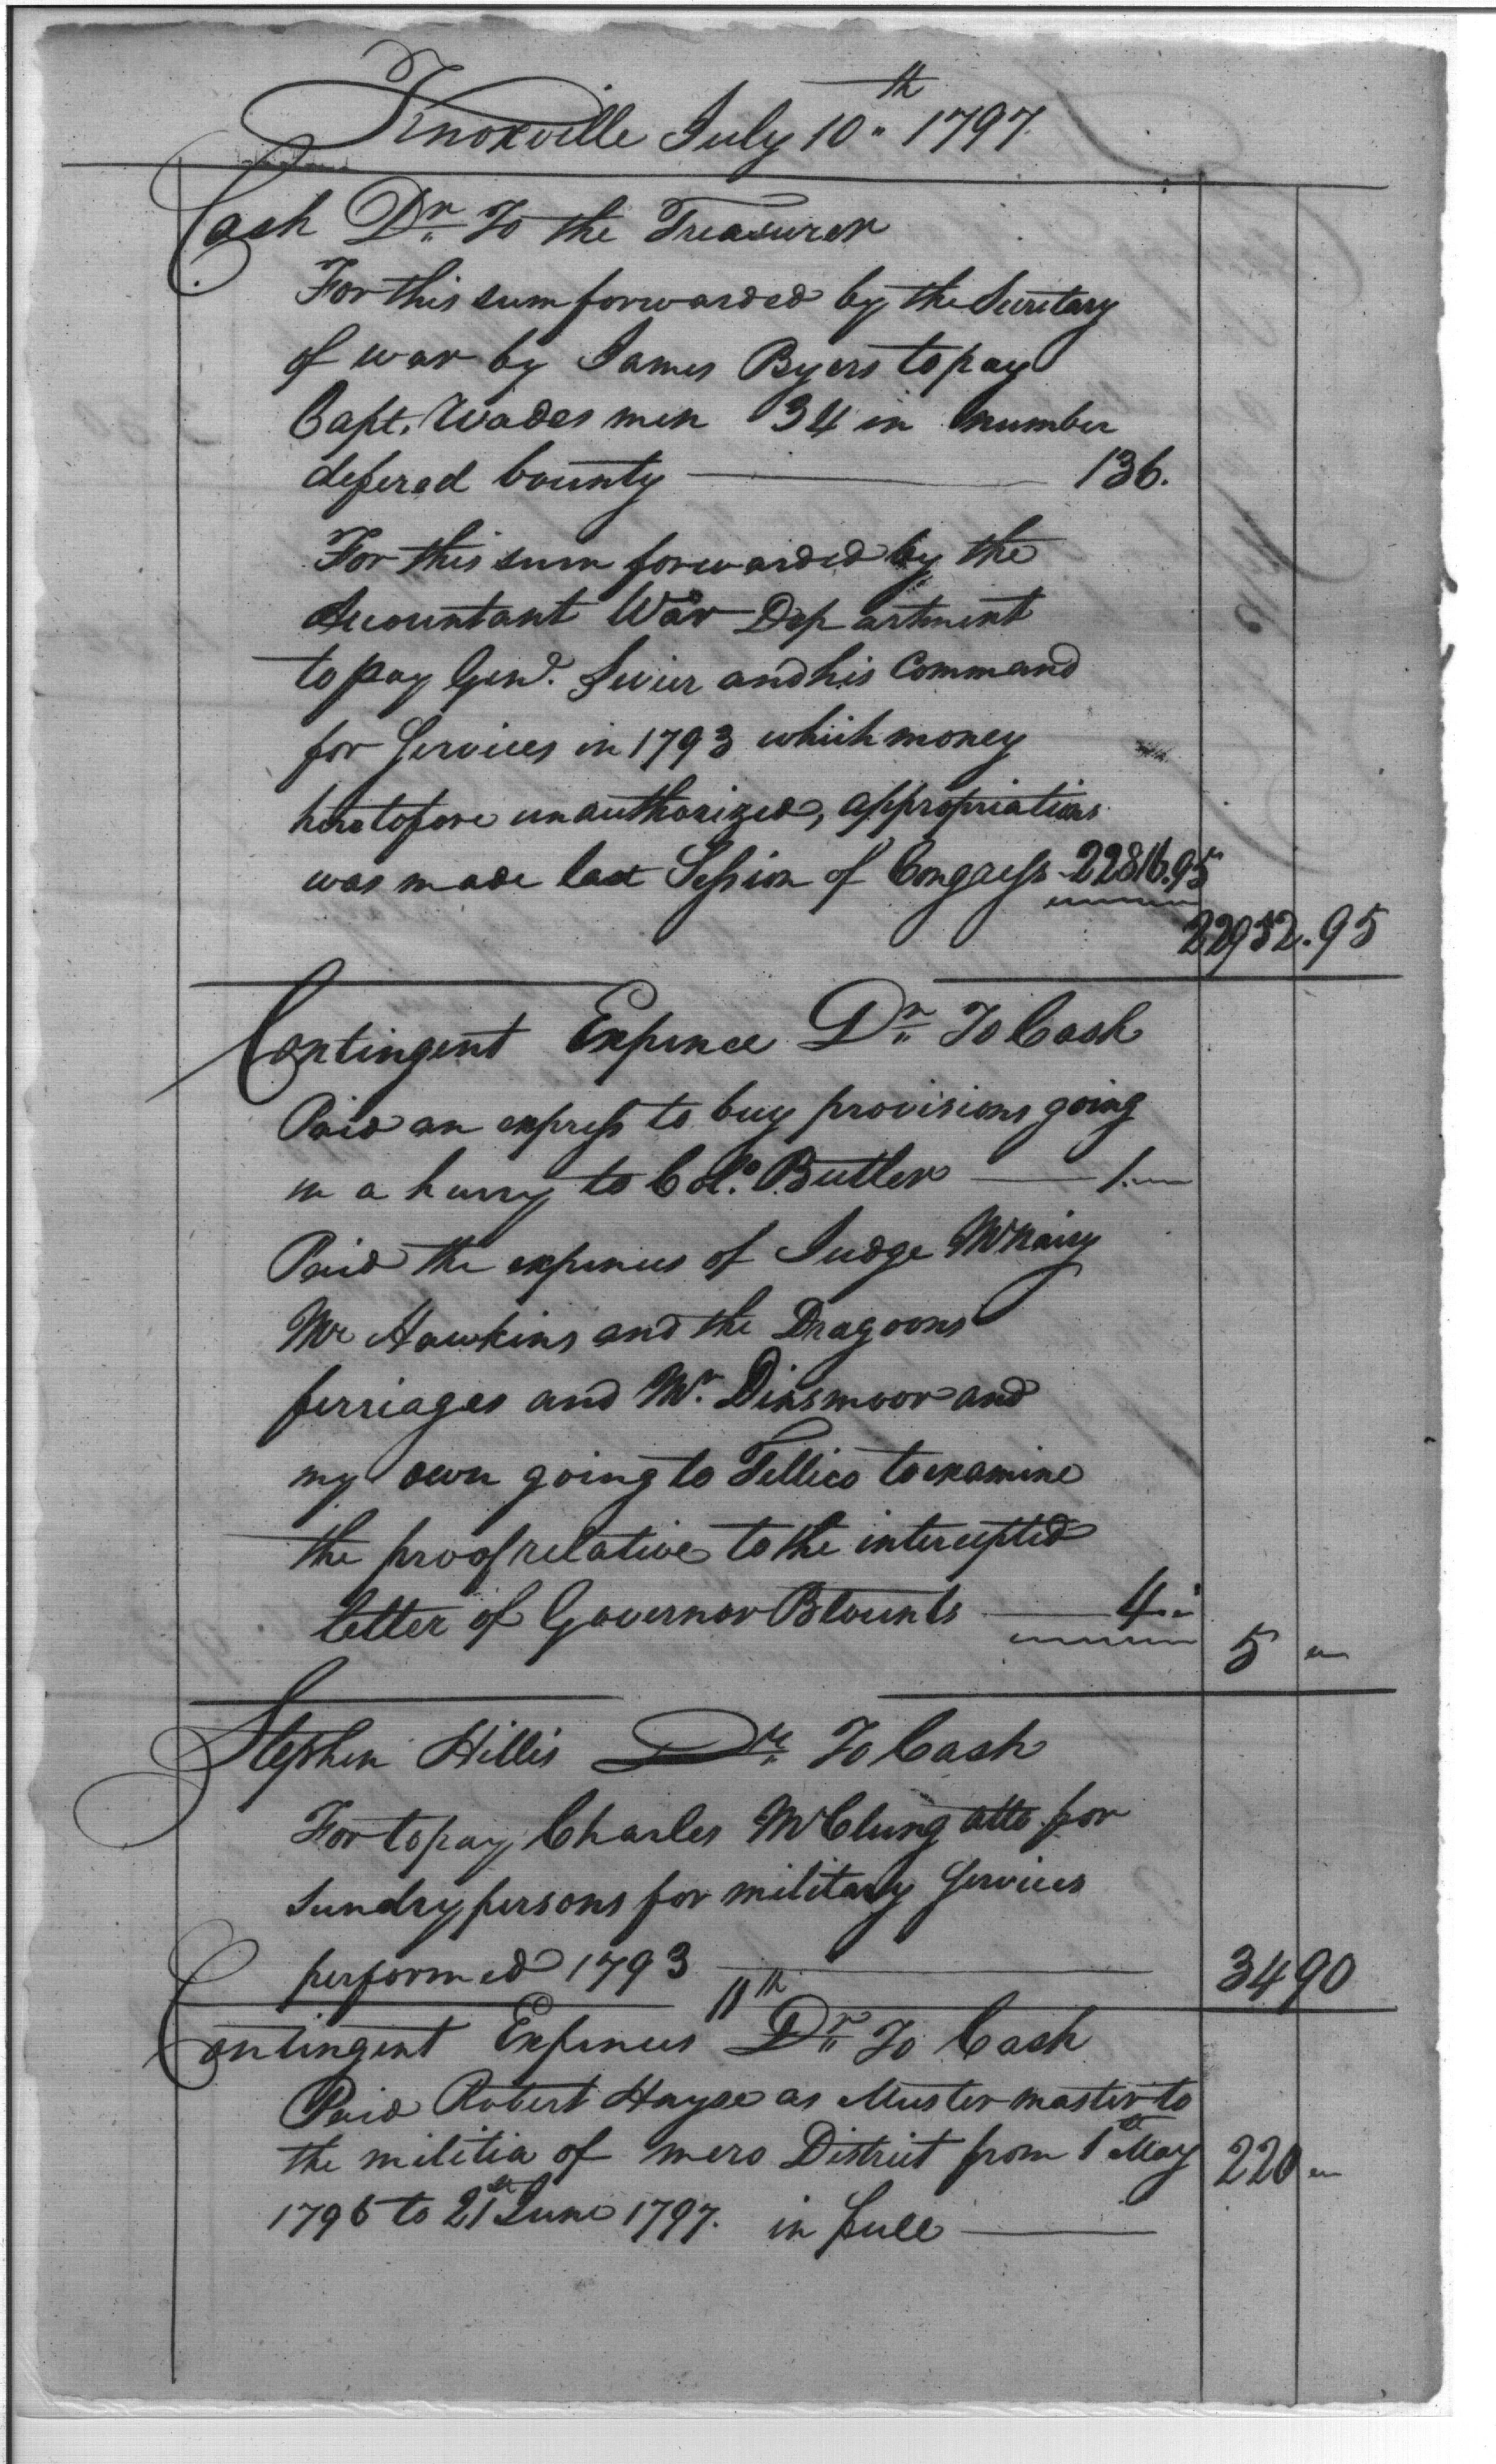 Knoxville July 10th 1797
Cash Dr. To the Treasurer
For this sum forwarded by the Secretary
of war by James Byers to pay
Capt. Wades men 34 in number
defered bounty 136.
For this sum forwarded by the
Accountant War Department
to pay Genl. Sevier and his Command
for Services in 1793 which money
heretofore unauthorized, appropriations
was made last Session of Congress 22816.95
22952.95
Contingent Expence Dr. To Cash
Paid an express to buy provisions going
in a hurry to Colo. Butler 1.
Paid the expences of Judge McNairy
Mr Hawkins and the Dragoons
ferriages and Mr. Dinsmoor and
my own going to Tellico to examine
the proof relative to the intercepted
letter of Governor Blounts 4.
5
Stephen Hillis Dr. To Cash
For to pay Charles McClung atto for
Sundry persons for military Services
performed 1793 3490
11th
Contingent Expences Dr. To Cash
Paid Robert Hayse as Muster master to
the militia of mero District from 1st May 220
1796 to 21st June 1797. in full